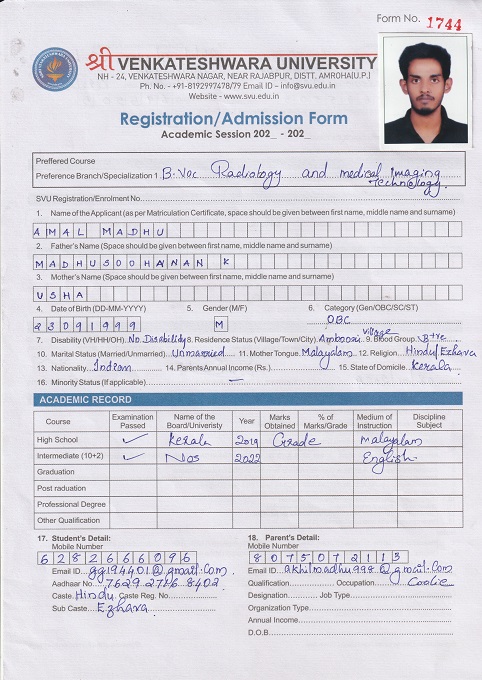 Form No. 1744
श्री VENKATESHWARA UNIVERSITY
NH - 24, VENKATESHWARA NAGAR, NEAR RAJABPUR, DISTT. AMROHA(U.P.)
Ph. No. - +91-8192997478/79 Email ID - info@svu.edu.in
Website - www.svu.edu.in
Registration/Admission Form
Academic Session 202_ - 202_
Preffered Course
Preference Branch/Specialization 1 B.Voc Radiology and medical Imaging Technology.
SVU Registration/Enrolment No
1. Name of the Applicant (as per Matriculation Certificate, space should be given between first name, middle name and surname)
AMAL MADHU
2. Father's Name (Space should be given between first name, middle name and surname)
MADHUSOODHANAN K
3. Mother's Name (Space should be given between first name, middle name and surname)
USHA
4. Date of Birth (DD-MM-YYYY) 5. Gender (M/F) 6. Category (Gen/OBC/SC/ST)
23091999 M OBC
7. Disability (VH/HH/OH). No Disability 8. Residence Status (Village/Town/City). village 9. Blood Group. B+ve
10. Marital Status (Married/Unmarried). Unmarried 11. Mother Tongue. Malayalam 12. Religion. Hindu/Ezhava
13. Nationality. Indian 14. Parents Annual Income (Rs.) 15. State of Domicile. Kerala
16. Minority Status (If applicable) —
ACADEMIC RECORD
Course Examination Passed Name of the Board/Univeristy Year Marks Obtained % of Marks/Grade Medium of Instruction Discipline Subject
High School ✓ Kerala 2019 Grade Malayalam
Intermediate (10+2) ✓ Nos 2022 English
Graduation
Post raduation
Professional Degree
Other Qualification
17. Student's Detail: 18. Parent's Detail:
Mobile Number Mobile Number
6282666096 8075072113
Email ID. gg194401@gmail.com Email ID. akhilmadhu998@gmail.com
Aadhaar No. 7629 2716 8402 Qualification Occupation. Coolie
Caste. Hindu Caste Reg. No. Designation Job Type
Sub Caste. Ezhava Organization Type
Annual Income
D.O.B.